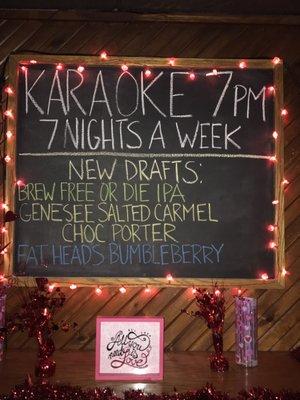 KARAOKE 7PM
7 NIGHTS A WEEK
NEW DRAFTS:
BREW FREE OR DIE IPA
GENESEE SALTED CARMEL
CHOC PORTER
FAT HEADS BUMBLEBERRY
All you
need is
Love